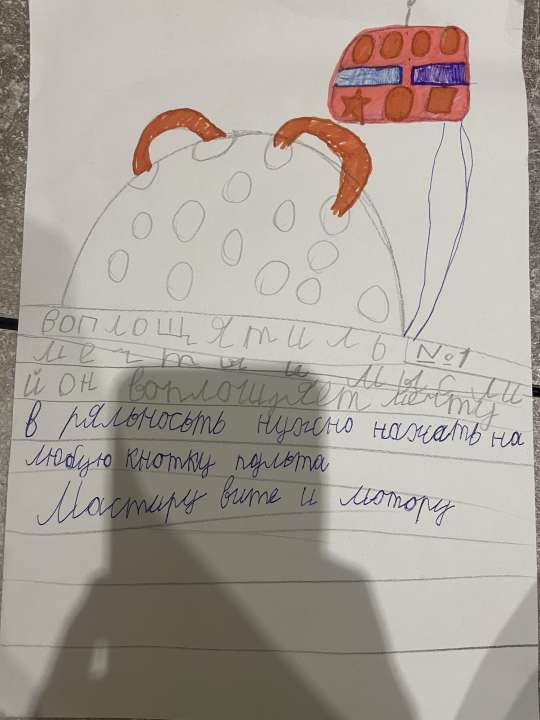 воплощятиль №1
мечты и мысли
й он воплощяет мечту
в ряльносьть нужно нажать на
любую кнотку пульта
Мастиру вите и мотору